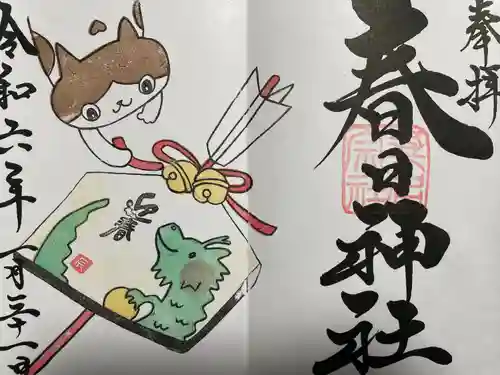 奉拝
春日神社
迎春
令和六年一月二十一日